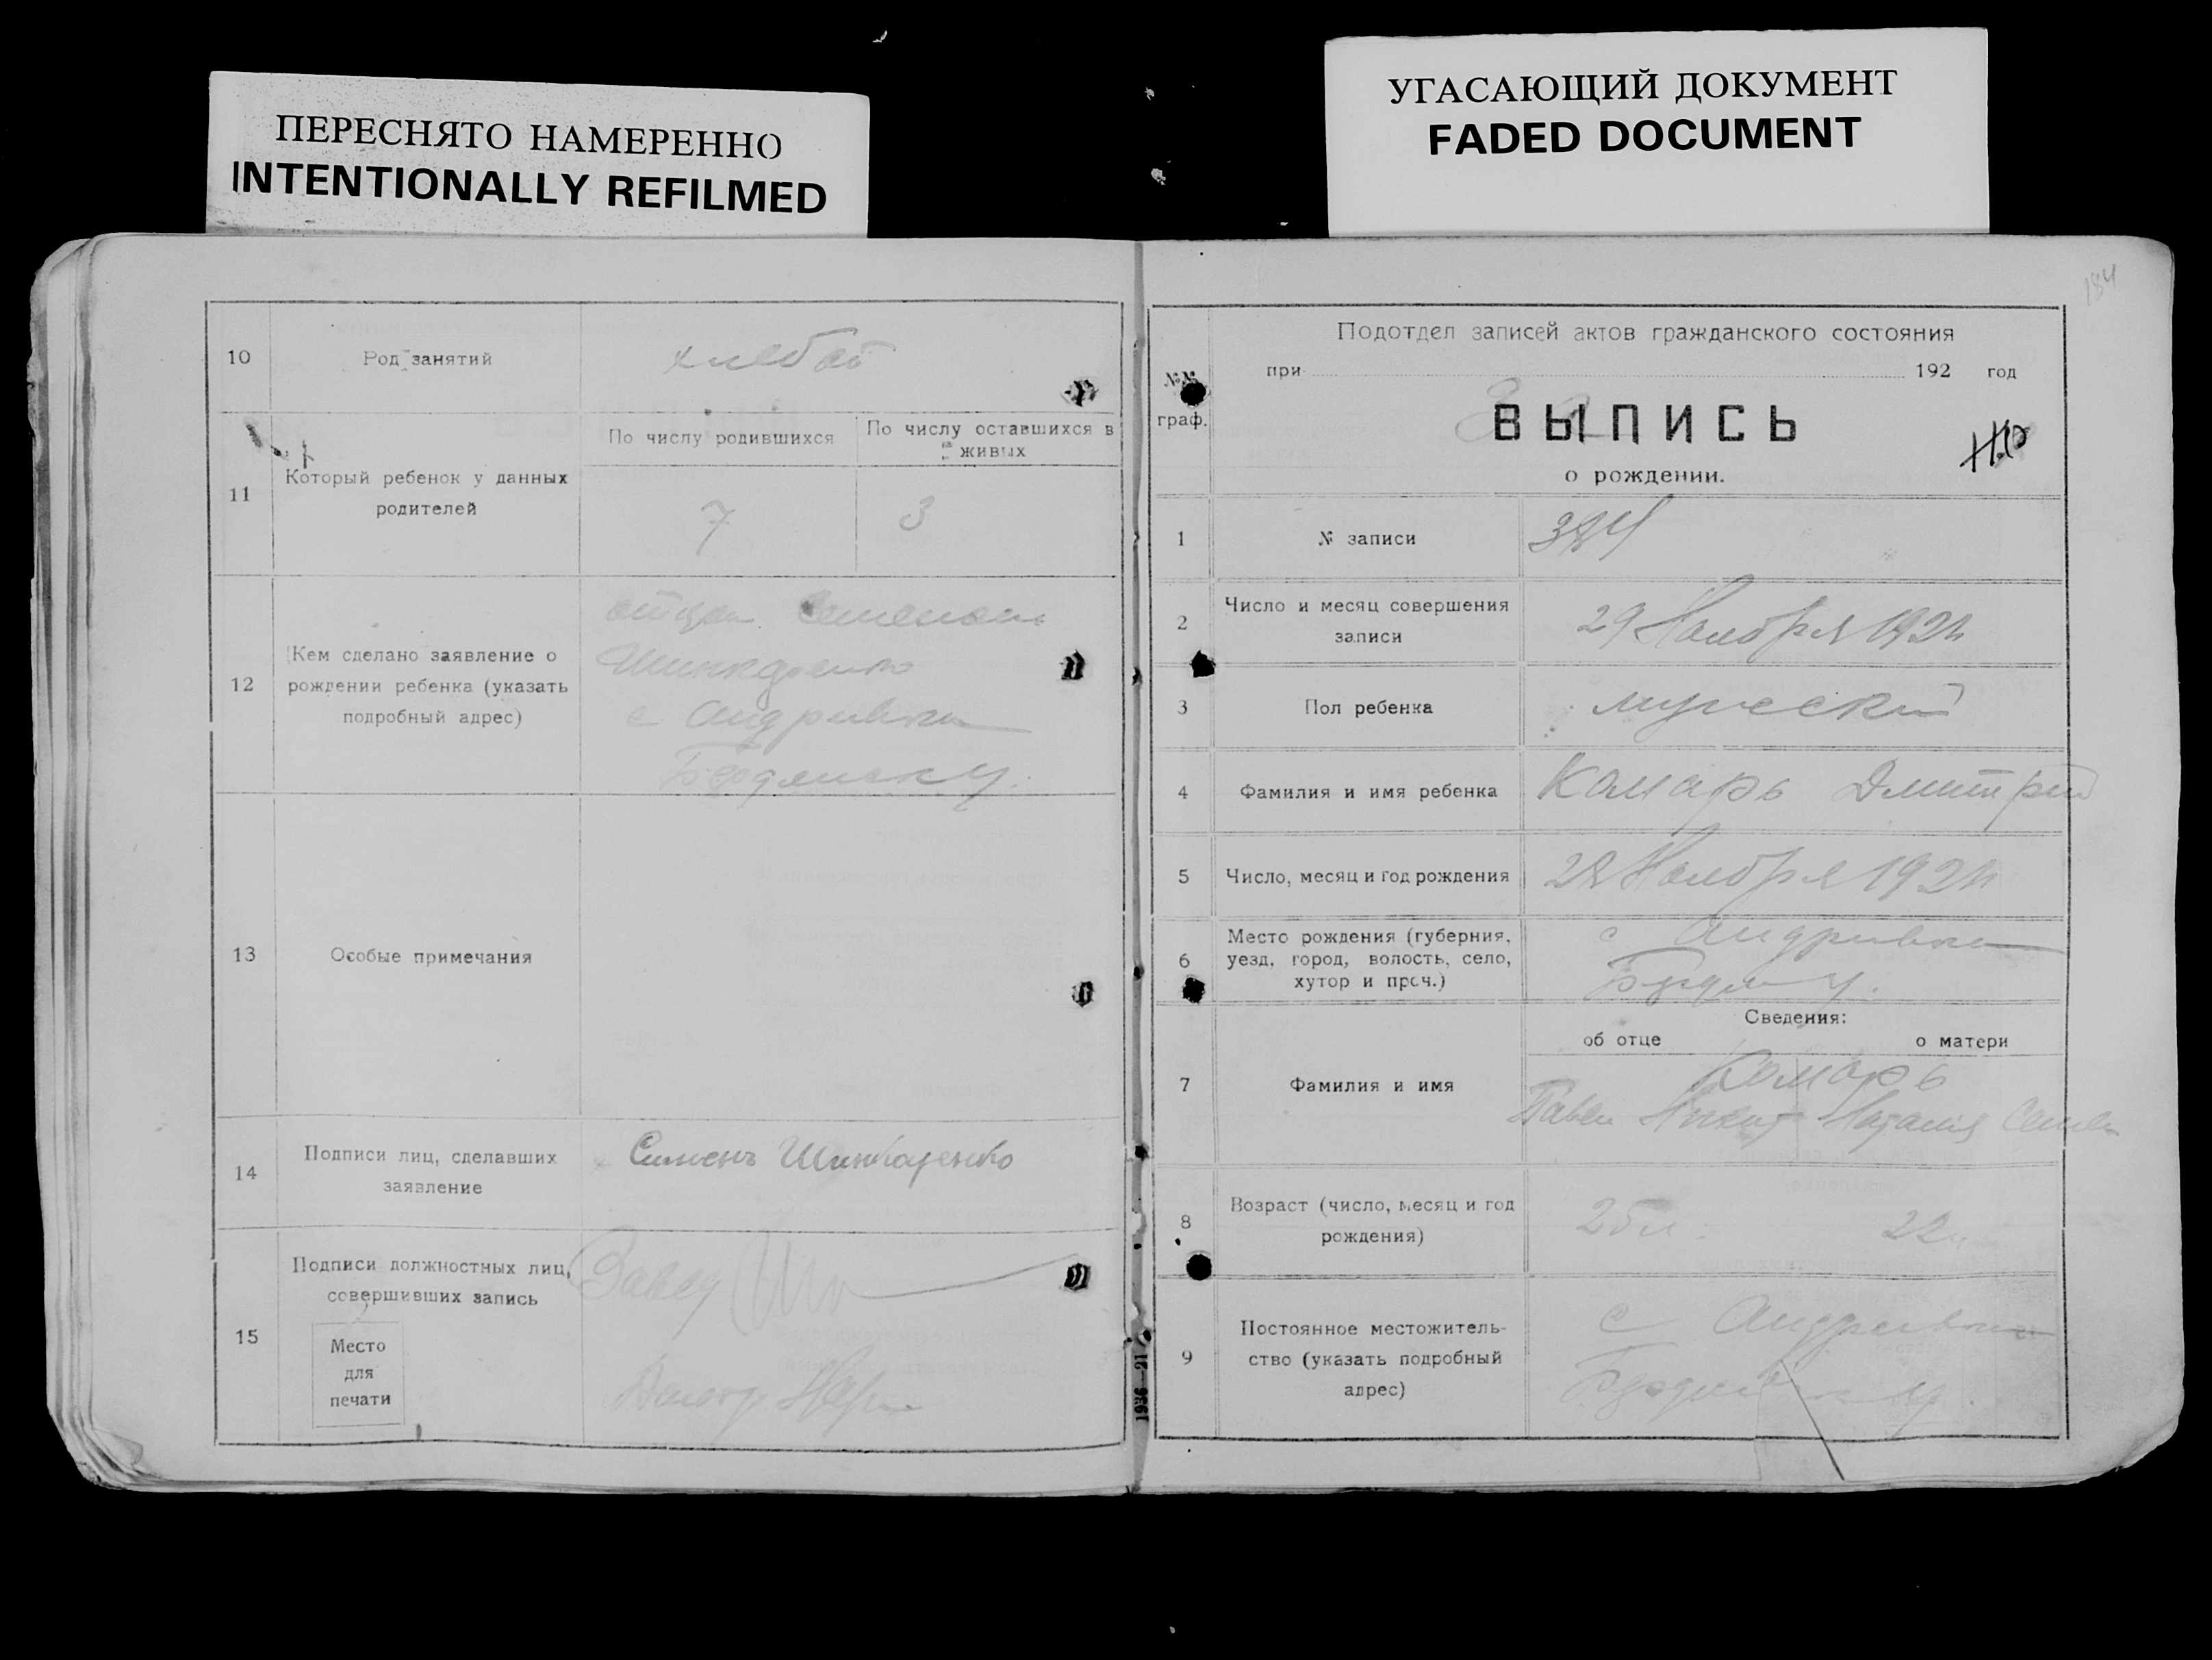 ПЕРЕСНЯТО НАМЕРЕННО
INTENTIONALLY REFILMED
УГАСАЮЩИЙ ДОКУМЕНТ
FADED DOCUMENT
10 Род занятий
11 Который ребенок у данных
родителей
По числу родившихся
По числу оставшихся в
живых
7 3
12 Кем сделано заявление о
рождении ребенка (указать
подробный адрес)
отцом Семеном
Шинкаренко
с Андривка
13 Особые примечания
14 Подписи лиц, сделавших
заявление
Сименъ Шинкаренко
15 Подписи должностных лиц,
совершивших запись
Место
для
печати
Завед
184
Подотдел записей актов гражданского состояния
при 192 год
№№
граф.
ВЫПИСЬ
о рождении.
1 № записи
2 Число и месяц совершения
записи
29 Ноября 192
3 Пол ребенка
мужской
4 Фамилия и имя ребенка
Комарь Дмитрий
5 Число, месяц и год рождения
Ноября 192
6 Место рождения (губерния,
уезд, город, волость, село,
хутор и проч.)
с Андривка
Сведения:
об отце о матери
7 Фамилия и имя
Комарь
Павел Наталия
8 Возраст (число, месяц и год
рождения)
25 л. 22
9 Постоянное местожитель-
ство (указать подробный
адрес)
с Андривка